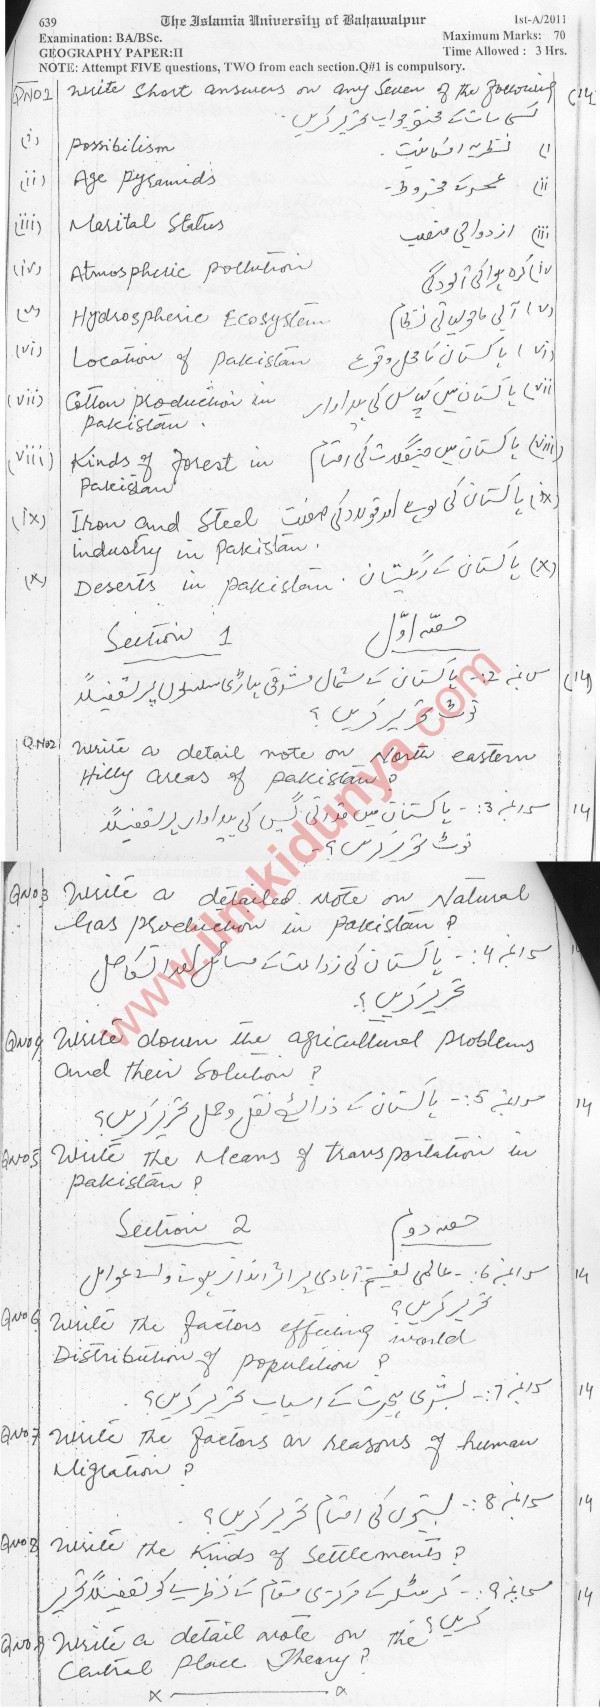 639 The Islamia University of Bahawalpur Ist-A/2011
Examination: BA/BSc. Maximum Marks: 70
GEOGRAPHY PAPER:II Time Allowed : 3 Hrs.
NOTE: Attempt FIVE questions, TWO from each section.Q#1 is compulsory.
QNO1 Write Short answers on any Seven of the following (14)
کسی سات کے مختصر جواب تحریر کریں۔
(i) Possibilism نظریہ امکانیت۔ (i
(ii) Age Pyramids عمر کے مخروط۔ (ii
(iii) Marital Status ازدواجی (iii
(iv) Atmospheric pollution کرہ ہوا کی آلودگی (iv
(v) Hydrospheric Ecosystem آبی ماحولیاتی نظام (v
(vi) Location of Pakistan پاکستان کا محل وقوع (vi
(vii) Cotton production in پاکستان میں کپاس کی پیداوار (vii
Pakistan.
(viii) Kinds of forest in پاکستان میں جنگلات کی اقسام (viii)
Pakistan
(ix) Iron and Steel پاکستان کی لوہے اور فولاد کی صنعت (ix)
industry in Pakistan.
(x) Deserts in Pakistan. پاکستان کے ریگستان (x)
Section 1 حصہ اوّل
س نمبر 2:- پاکستان کے شمال مشرقی پہاڑی سلسلوں پر تفصیلاً (14)
نوٹ تحریر کریں ؟
Q.NO2 Write a detail note on North eastern
Hilly areas of Pakistan?
سوال نمبر 3:- پاکستان میں قدرتی گیس کی پیداوار پر تفصیلاً 14
نوٹ تحریر کریں ؟-
QNO3 Write a detailed Note on Natural
Gas production in Pakistan?
سوال نمبر 4:- پاکستان کی زراعت کے مسائل اور انکا حل 14
تحریر کریں ؟
QNO4 Write down the agricultural problems
and their Solution?
سوال نمبر 5:- پاکستان کے ذرائع نقل و حمل تحریر کریں؟ 14
QNO5 Write the Means of transportation in
Pakistan?
Section 2 حصہ دوم
سوال نمبر 6:- عالمی تقسیم آبادی پر اثر انداز ہونے والے عوامل 14
تحریر کریں؟
QNO6 Write the factors effecting world
Distribution of Population?
سوال نمبر 7:- بشری ہجرت کے اسباب تحریر کریں؟ 14
QNO7 Write the factors or reasons of human
Migration?
سوال نمبر 8:- بستیوں کی اقسام تحریر کریں؟ 14
QNO8 Write the Kinds of Settlements?
سوال نمبر 9:- کرسٹلر کے مرکزی مقام کے نظریے کو تفصیلاً تحریر 14
کریں؟
QNO9 Write a detail note on the
Central Place Theory?
x x
www.ilmkidunya.com